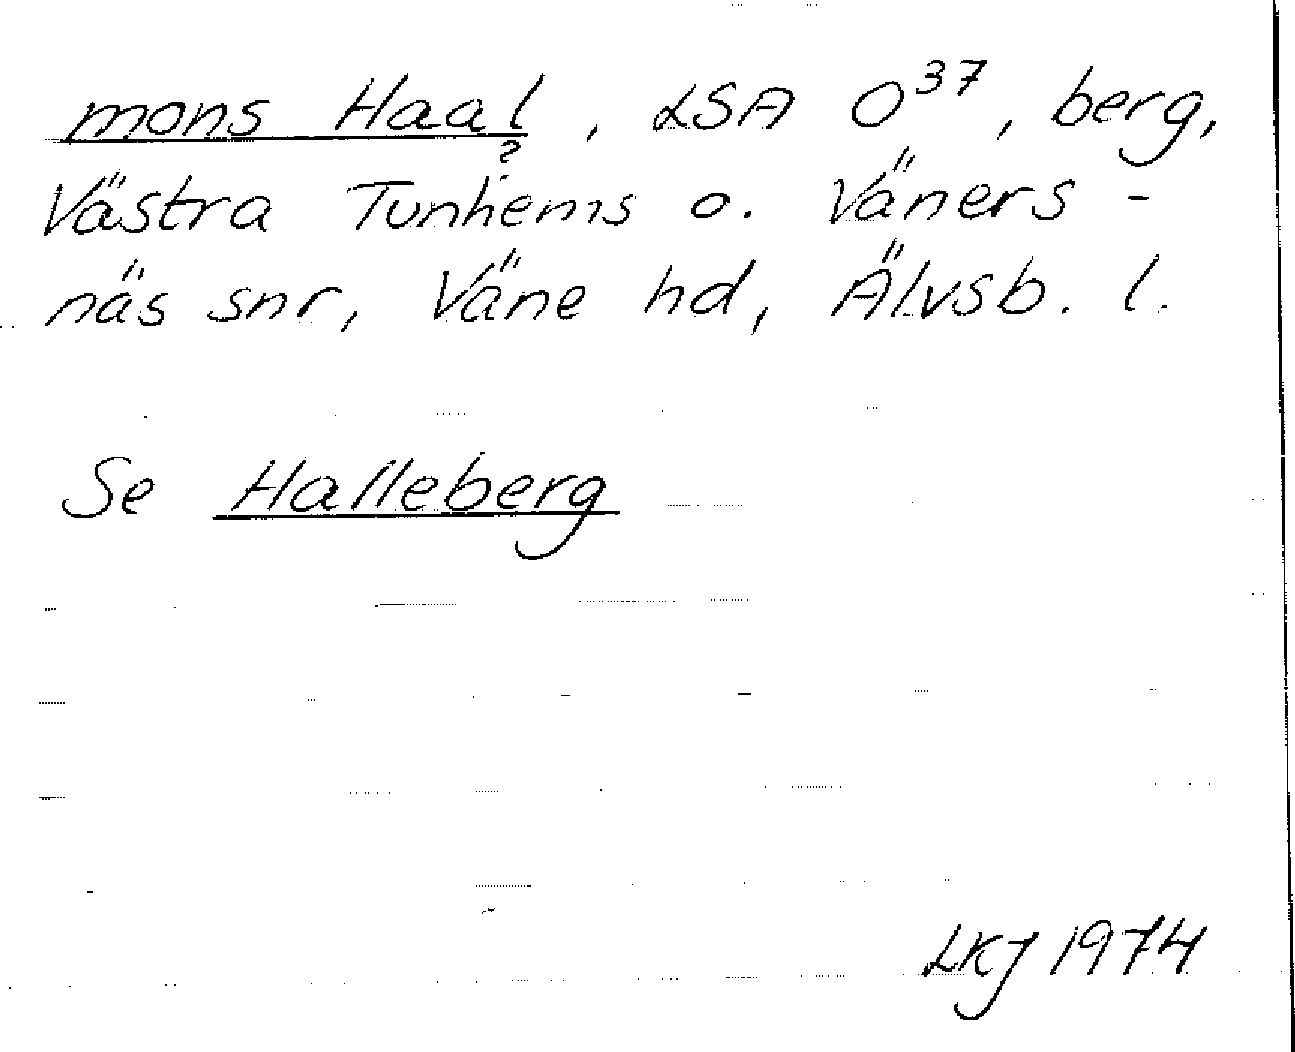 mons Haal, LSA O³⁷, berg,
?
Västra Tunhems o. Väners-
näs snr, Väne hd, Älvsb. l.
Se Halleberg
LKJ 1974